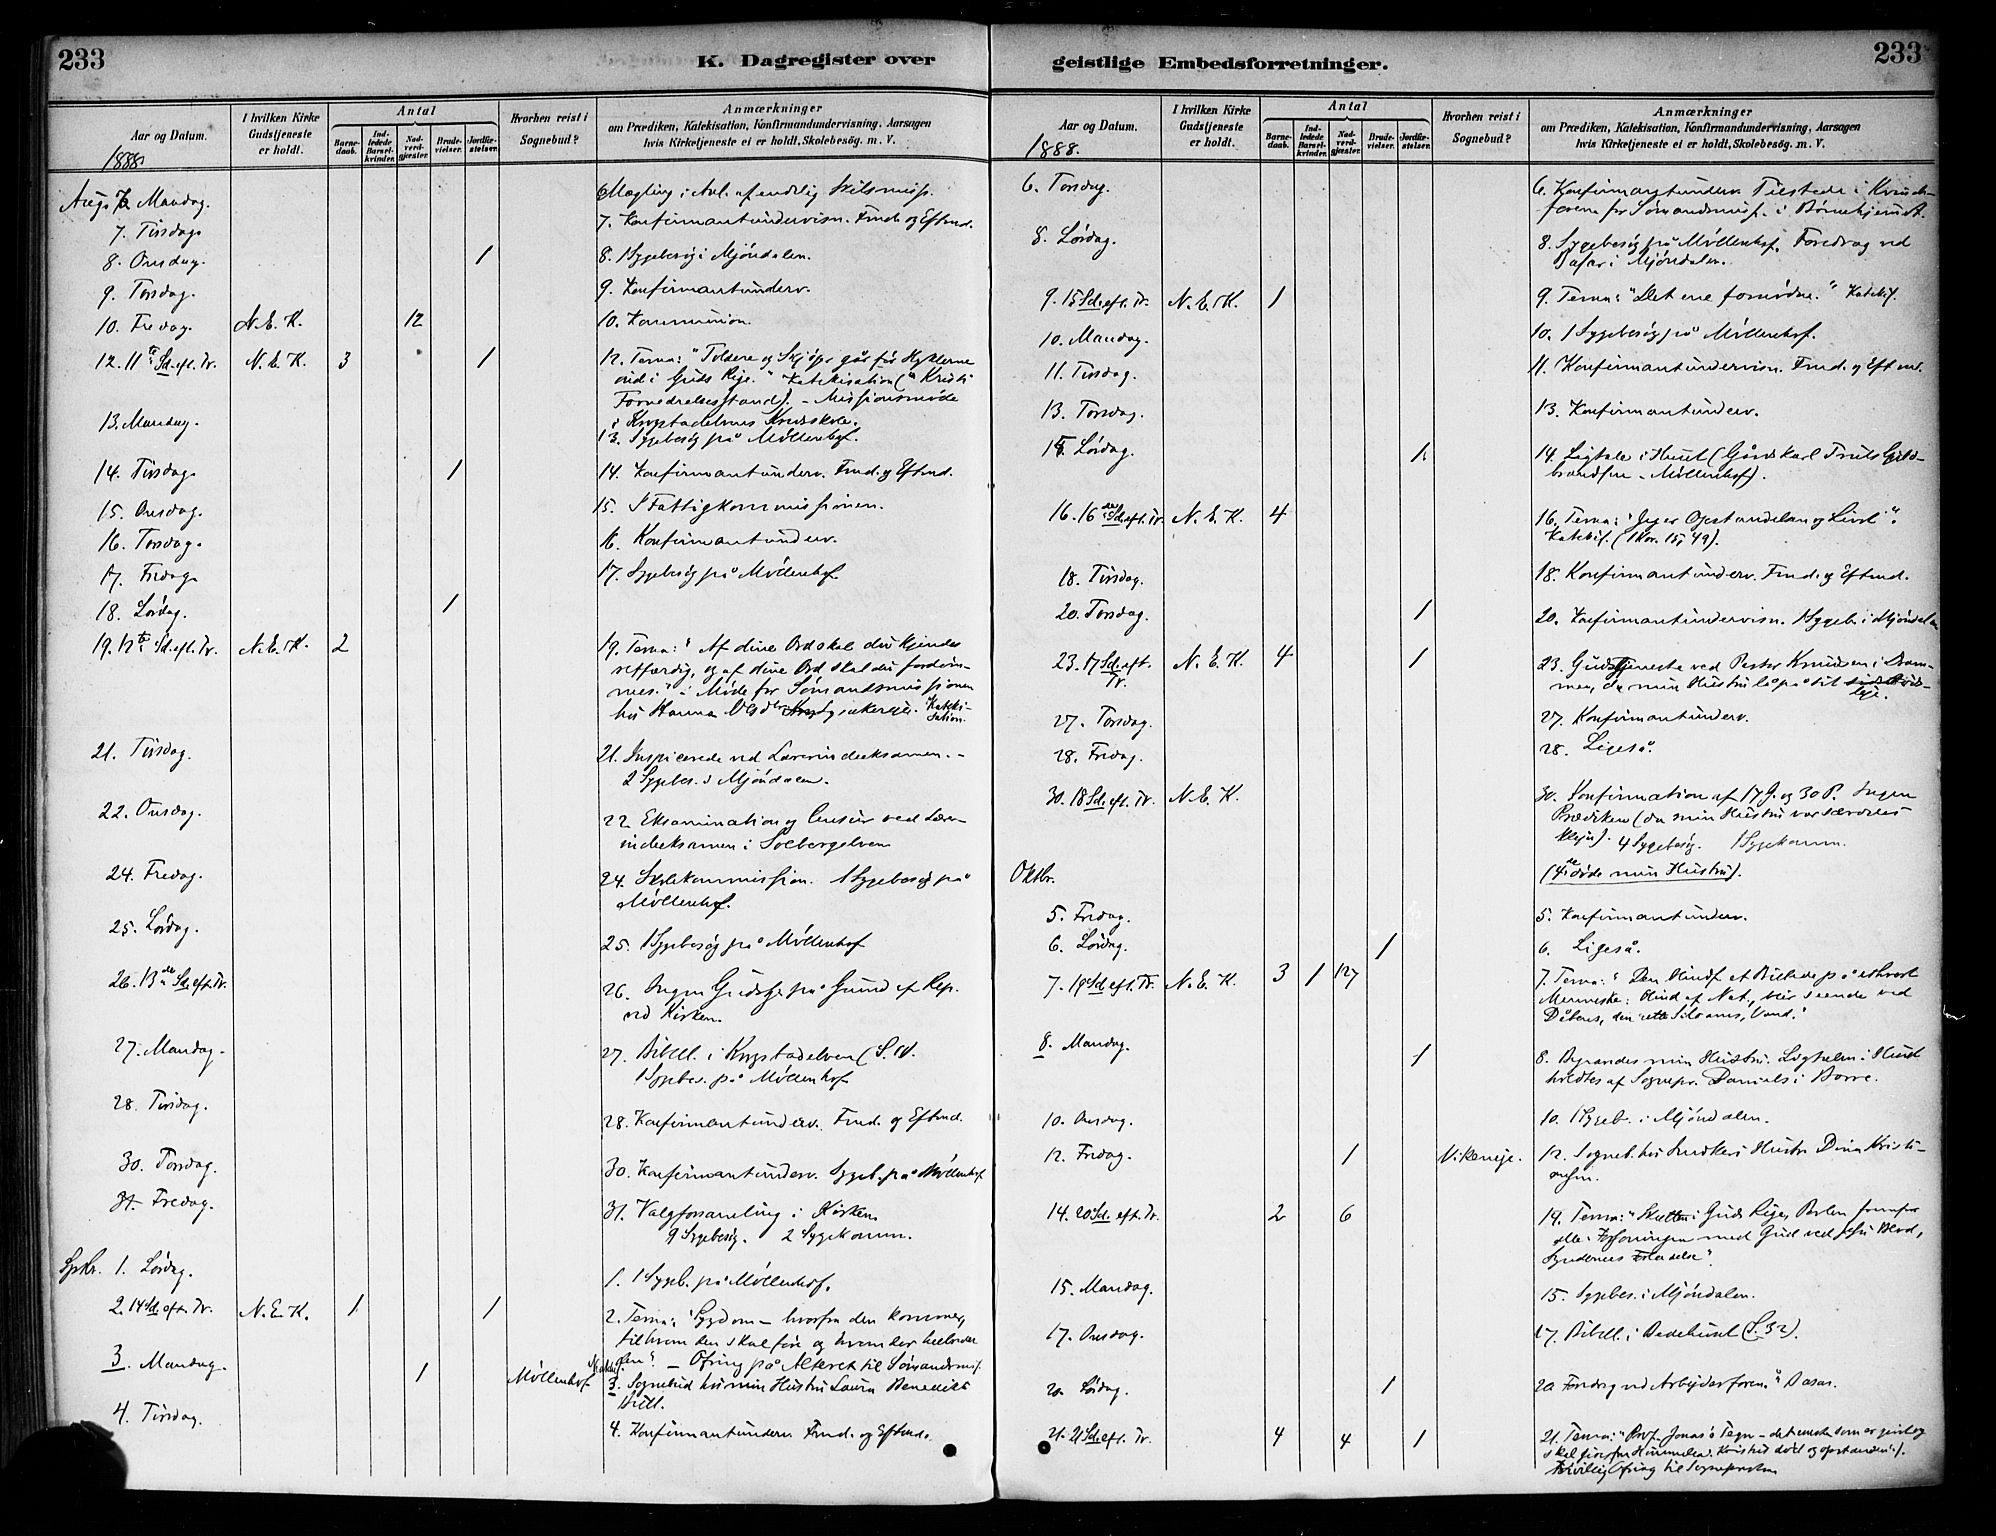 233
K. Dagregister over
Aar og Datum.
1888.
I hvilken Kirke
Gudstjeneste
er holdt.
Antal
Barne-
daab.
Ind-
ledede
Barsel-
kvinder.
Nad-
verd-
gjæster.
Brude-
vielser.
Jordfæ-
stelser.
Hvorhen reist i
Sognebud?
Anmærkninger
om Prædiken, Katekisation, Konfirmandundervisning, Aarsagen
hvis Kirketjeneste ei er holdt, Skolebesög. m. V.
Aug. 6. Mandag.
6. Mægling i Anl. af endelig Skilsmiss.
7. Tirsdag.
7. Konfirmantundervisn. Fmd. og Eftmd.
8. Onsdag. 1
8. 1 Sygebesøg i Mjöndalen.
9. Torsdag.
9. Konfirmantunderv.
10. Fredag. N. E. K. 12
10. Kommunion.
12. 11te Sd. eft. Tr. N. E. K. 3 1
12. Tema: "Toldere og Skjöger går för Hyklerne
ind i Guds Rige." Katekisation ("Kristi
Fornedrelsesstand). - Missionsmöde
i Krogstadelvens Kredsskole.
13. Mandag.
13. Sygebesög på Möllenhof.
14. Tirsdag 1
14. Konfirmantunderv. Fmd. og Eftmd.
15. Onsdag.
15. I Fattigkommissionen.
16. Torsdag.
16. Konfirmantunderv.
17. Fredag
17. Sygebesög på Möllenhof
18. Lördag. 1
19. 12te Sd. eft. Tr. N. E. K. 2
19. Tema: "Af dine Ord skal du kjendes
retfærdig, og af dine Ord skal du fordöm-
mes." i Möde for Sömandsmissionen
hos Hanna Kateki-
sation.
21. Tirsdag.
21. Inspicerede ved Lærerindeeksamen. -
2 Sygebes. i Mjöndalen.
22. Onsdag.
22. Eksamination og Censur ved Lærer-
indeeksamen i Solbergelven
24. Fredag.
24. Skolekommission. 1 Sygebesög på
Möllenhof.
25. Lördag.
25. 1 Sygebesög på Möllenhof
26. 13de Sd. eft. Tr.
26. Ingen Gudstj. på Grund af Rep.
ved Kirken.
27. Mandag.
27. Bibell. i Krogstadelven
1 Sygebes. på Möllenhof
28. Tirsdag.
28. Konfirmantunderv. Fmd. og Eftmd.
30. Torsdag.
30. Konfirmantunderv. Sygeb. på Möllenhof
31. Fredag.
31. Valgforsamling i Kirken
9 Sygebesög. 2 Sygekomm.
Sptbr. 1. Lördag.
1. 1 Sygeb. på Möllenhof.
2. 14 Sd. eft. Tr. N. E. K. 1 1
2. Tema: "Sygdom - hvorfra den kommer,
til hvem den skal före og hvem der helbreder
den". - Ofring på Alteret til Sömandsmis.
3. Mandag. 1 Möllenhof
3. Sognebud hos min Hustru Laura Benedikte
4. Tirsdag.
4. Konfirmantunderv. Fmd. og Eftmd.
233
geistlige Embedsforretninger.
Aar og Datum.
1888.
I hvilken Kirke
Gudstjeneste
er holdt.
Antal
Barne-
daab.
Ind-
ledede
Barsel-
kvinder.
Nad-
verd-
gjæster.
Brude-
vielser.
Jordfæ-
stelser.
Hvorhen reist i
Sognebud?
Anmærkninger
om Prædiken, Katekisation, Konfirmandundervisning, Aarsagen
hvis Kirketjeneste ei er holdt, Skolebesög. m. V.
6. Torsdag.
6. Konfirmantunderv. Tilstede i Kvinde-
foren. for Sömandsmiss. i Börnehjemmet.
8. Lördag.
8. Sygebesög på Möllenhof. Foredrag ved
Basar i Mjöndalen.
9. 15 Sd. eft. Tr. N. E. K. 1
9. Tema: "Det ene fornödne." Katekis.
10. Mandag.
10. 1 Sygebesög på Möllenhof.
11. Tirsdag.
11. Konfirmantundervisn. Fmd. og Eftmd.
13. Torsdag.
13. Konfirmantunderv.
15. Lördag. 1
14. Ligtale i Huset (Gårdskarl Truls Guld-
brandsen - Möllenhof).
16. 16de Sd. eft. Tr. N. E. K. 4
16. Tema: "Jeg er Opstandelsen og Livet".
Katekis. (1 Kor. 15, 49).
18. Tirsdag.
18. Konfirmantunderv. Fmd. og Eftmd.
20. Torsdag. 1
20. Konfirmantundervisn. 1 Sygeb. i Mjöndalen
23. 17 Sd. eft. Tr. N. E. K. 4 1
23. Gudstjeneste ved Pastor Knudsen i Dram-
men, da min Hustru lå på sit
27. Torsdag.
27. Konfirmantunderv.
28. Fredag.
28. Ligeså.
30. 18 Sd. eft. Tr. N. E. K.
30. Konfirmation af 17 G. og 30 P. Ingen
Prædiken (da min Hustru var særdeles
klein). 4 Sygebesög. 1 Sygekomm.
Oktbr.
(4de döde min Hustru).
5. Fredag.
5. Konfirmantunderv.
6. Lördag. 1
6. Ligeså.
7. 19 Sd. eft. Tr. N. E. K. 3 1 127
7. Tema: "Den Blindf. et Billede på ethvert
Menneske: blind af Nat., bliver seende ved
Dåbens, den Siloams, Vand."
8. Mandag. 1
8. Begravdes min Hustru. Ligtalen i Huset
holdtes af Sognepr. Daniels i Borre.
10. Onsdag.
10. 1 Sygeb. i Mjöndalen.
12. Fredag. 1 Vikeneje.
12. Sogneb. hos Snedkers Hustru Dina Kristi-
ansen.
14. 20 Sd. eft. Tr. 2 6
14. Tema: "Skatten i Guds Rige, Perlen fremfor
alle: Forsoningen med Gud ved Jesu Blod,
Syndernes Forladelse".
15. Mandag.
15. Sygebes. i Mjöndalen.
17. Onsdag.
17. Bibell. i Bedehuset (S. 32).
20. Lördag. 1
20. Foredrag ved Arbejderforen.s Basar.
21. 21 Sd. eft. Tr. 4 4 1
21. Tema: "Prof. Jonas's Tegn - det eneste som er givet og
skal gives fra Himmelen: Kristus död og opstanden".
Frivillig Ofring til Sognepresten